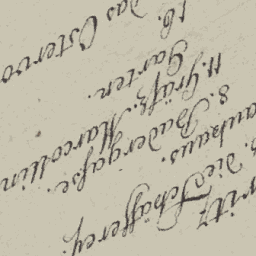 oritz
die Schäfferey.
auhaus.
8. Badergaße.
11. Gräfl. Marcollin
Garten.
16. Das Ostervo